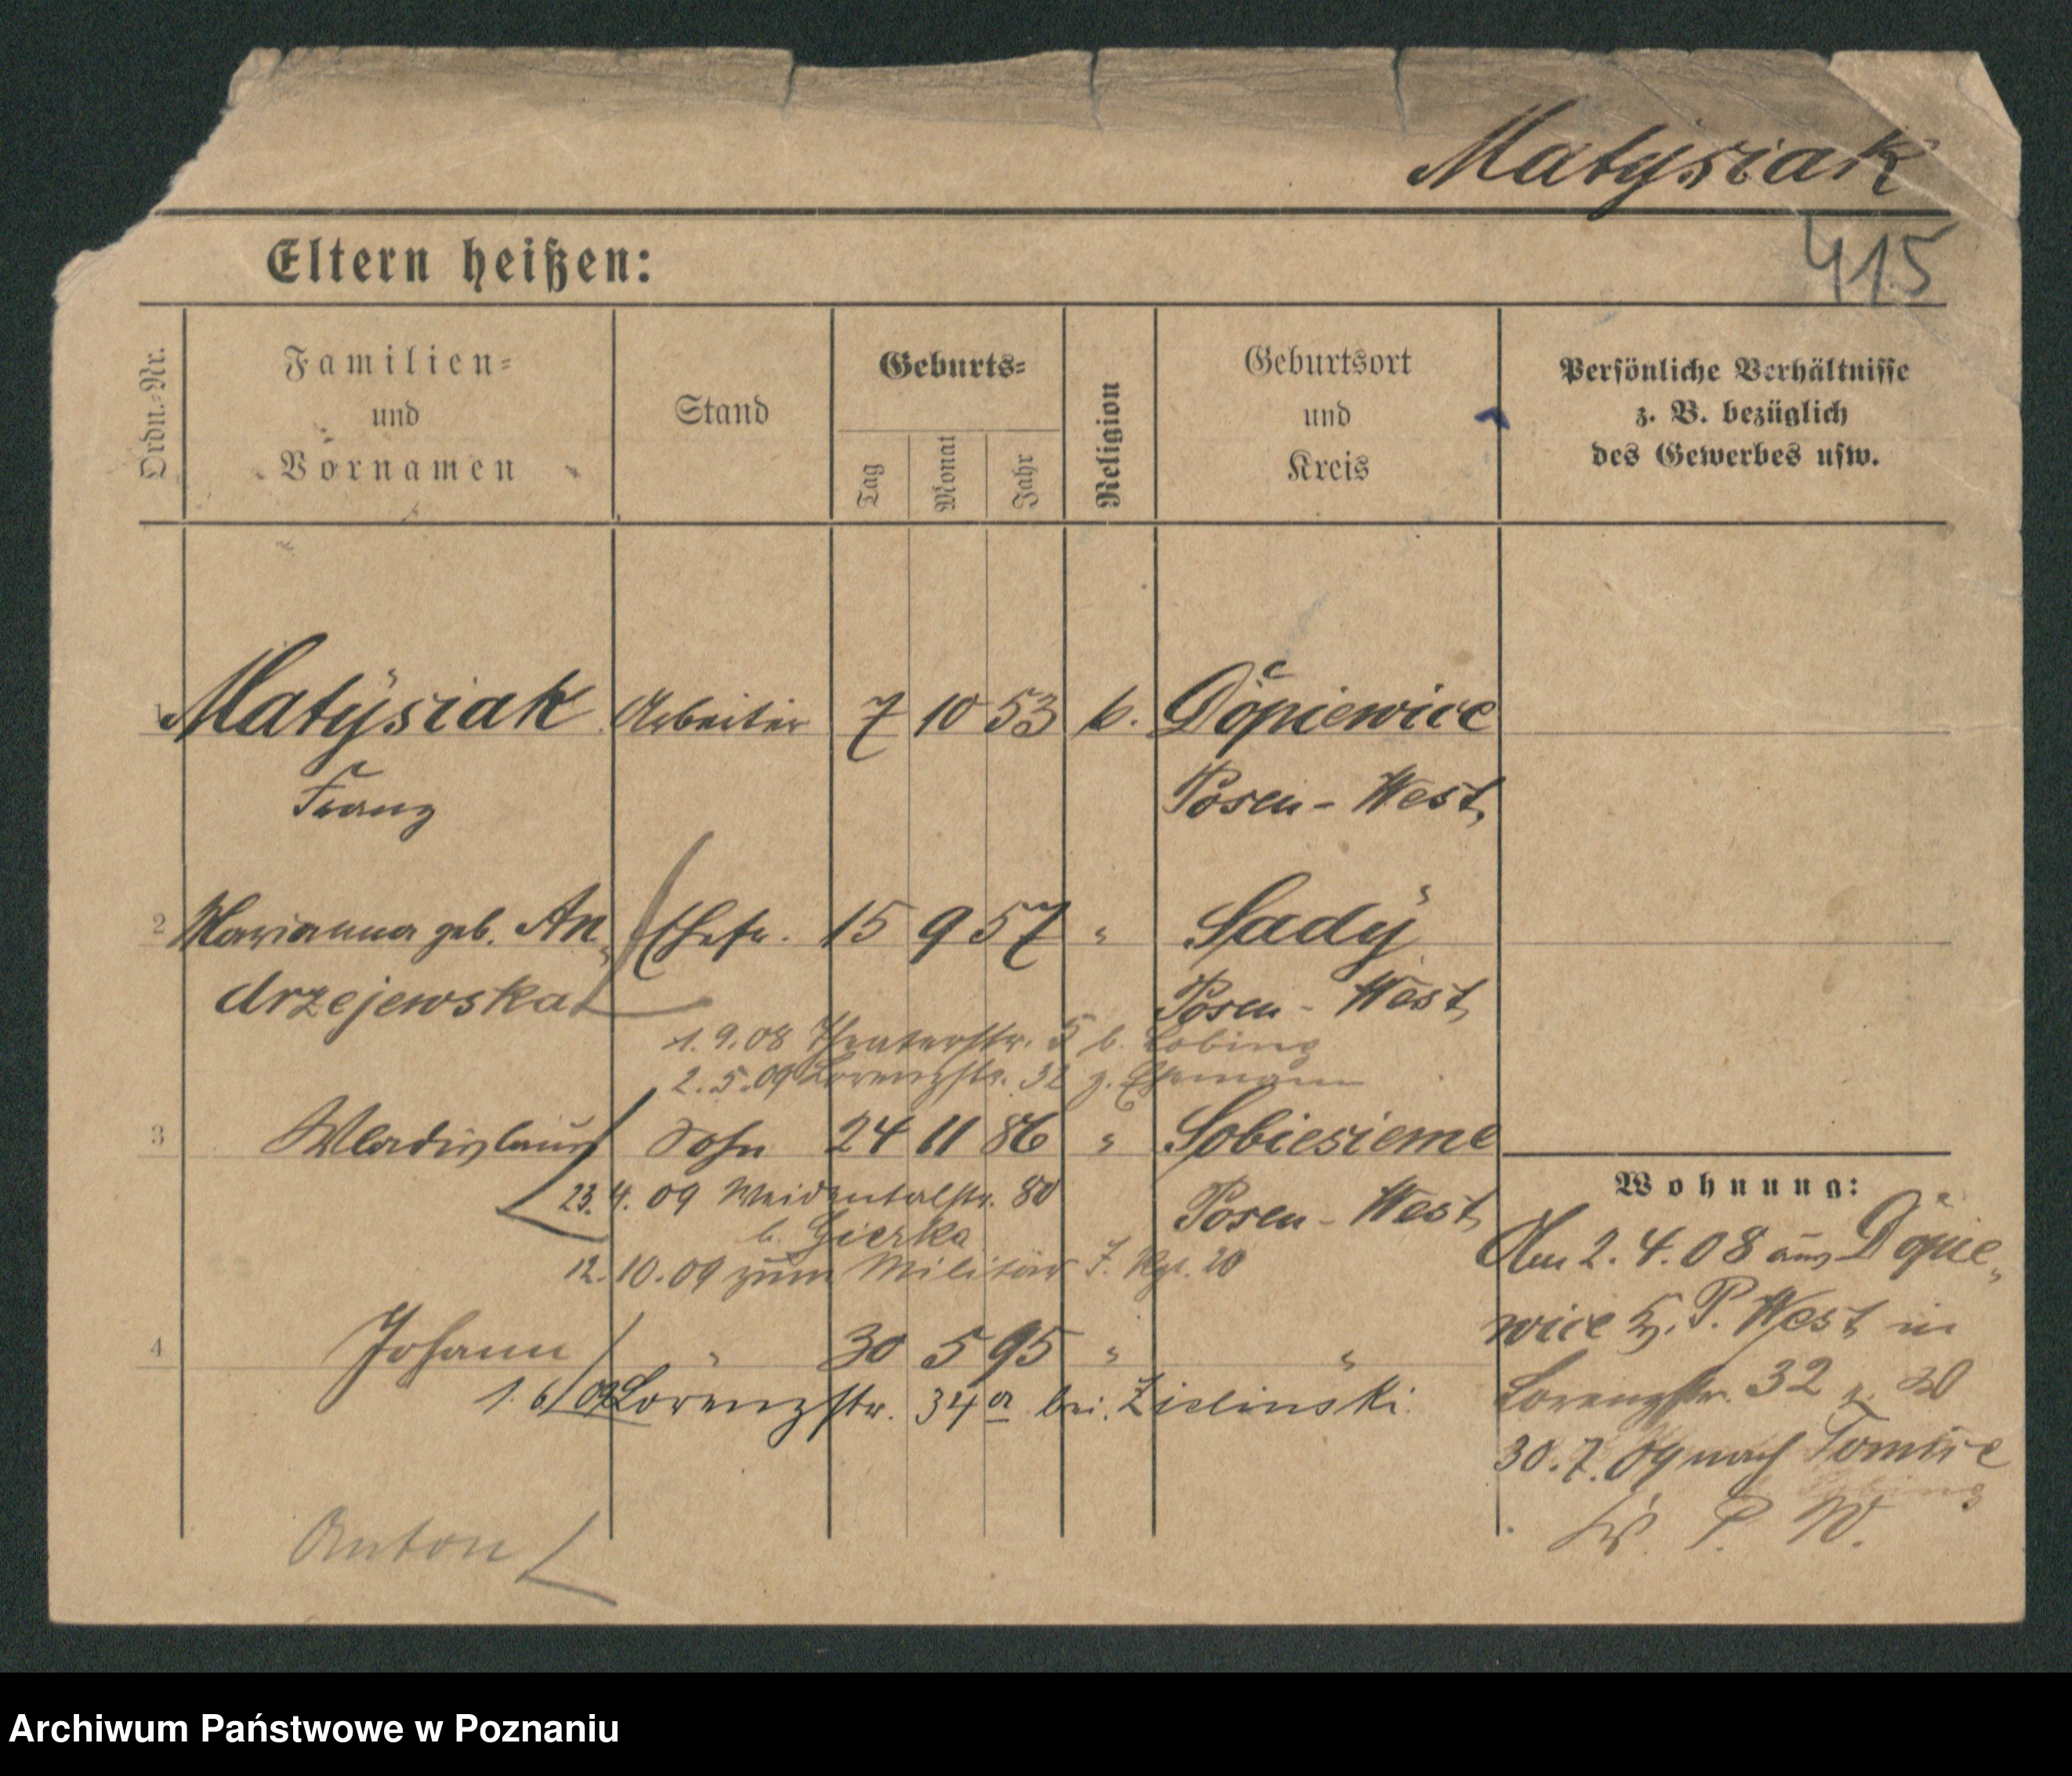 Matysiak
415
Eltern heißen:
Ordn.-Nr.
Familien-
und
Vornamen
Stand
Geburts-
Tag
Monat
Jahr
Religion
Geburtsort
und
Kreis
Persönliche Verhältnisse
z. B. bezüglich
des Gewerbes usw.
1 Matysiak Arbeiter 7 10 53 k. Dopiewice
Franz Posen-West
2 Marianna geb. An- Ehefr. 15 9 57 " Sady
drzejewska Posen-West
1.9.08 Theaterstr. 5 b. Lobing
2.5.09 Lorenzstr. 32 z. Ehemann
3 Wladislaus Sohn 24 11 86 " Sobiesierne
23.4.09 Weidentalstr. 80 Posen-West
b. Gierka
12.10.09 zum Militär J. Rgt. 20
4 Johann " 30 5 95 " "
1.6/09 Lorenzstr. 34a bei Zielinski
Anton
Wohnung:
Am 2.4.08 aus Dopie-
wice Kr. P. West in
Lorenzstr. 32
30.7.09 nach Tomice
Kr. P. W.
Archiwum Państwowe w Poznaniu